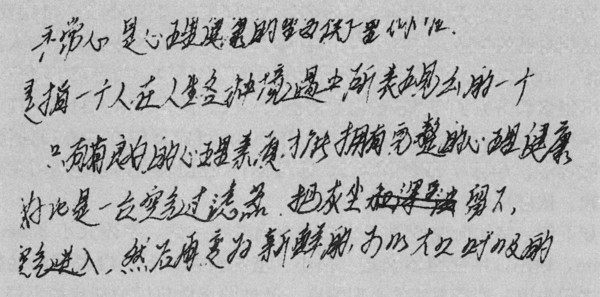 平常心 是心理健康的
是指一个人在人生各种境遇中所表现出的一个
只有有良的心理素质,才能拥有完整的心理健康
好比是一台空气过滤器,把灰尘留下,
空气进入,然后再变为新鲜的,可以大口呼吸的